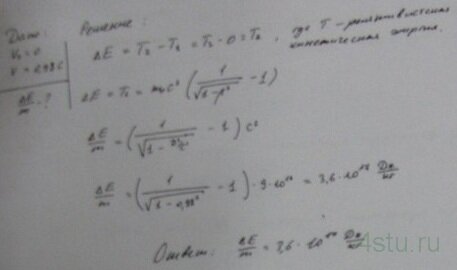 Дано:
V₀ = 0
V = 0,98c
ΔE/m - ?
Решение:
ΔE = T₂ - T₁ = T₂ - 0 = T₂, где T - релятивистская
кинетическая энергия.
ΔE = T₂ = m₀c² (1/√(1-β²) - 1)
ΔE/m = (1/√(1 - v²/c²) - 1) c²
ΔE/m = (1/√(1 - 0,98²) - 1) · 9 · 10¹⁶ = 3,6 · 10¹⁷ Дж/кг
Ответ: ΔE/m = 3,6 · 10¹⁷ Дж/кг
4stu.ru